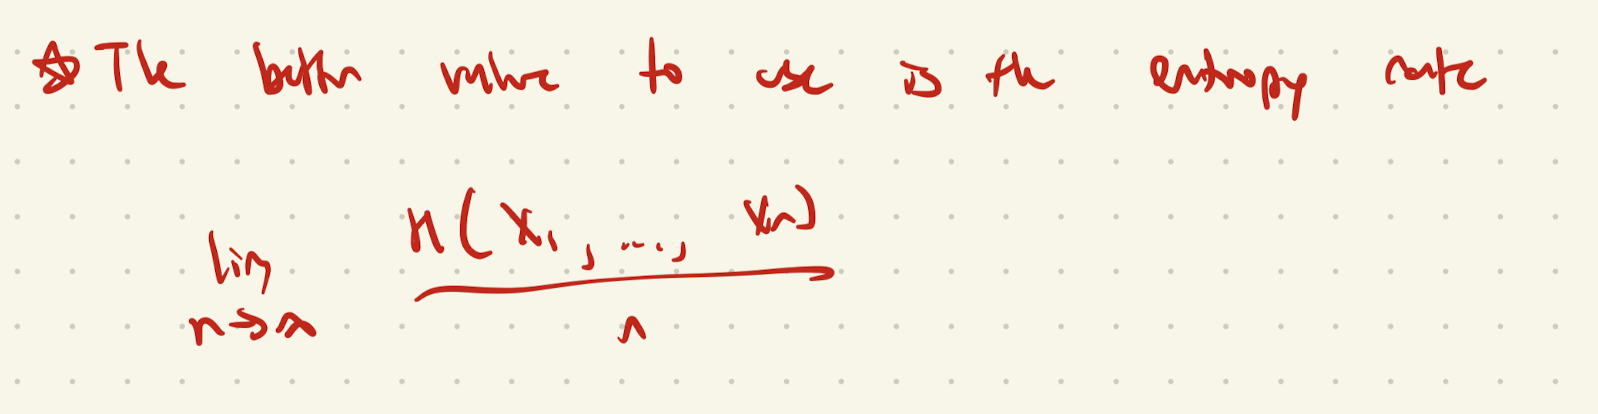 ☆ The better value to use is the entropy rate
lim n→∞ H(X₁, ..., Xn) / n